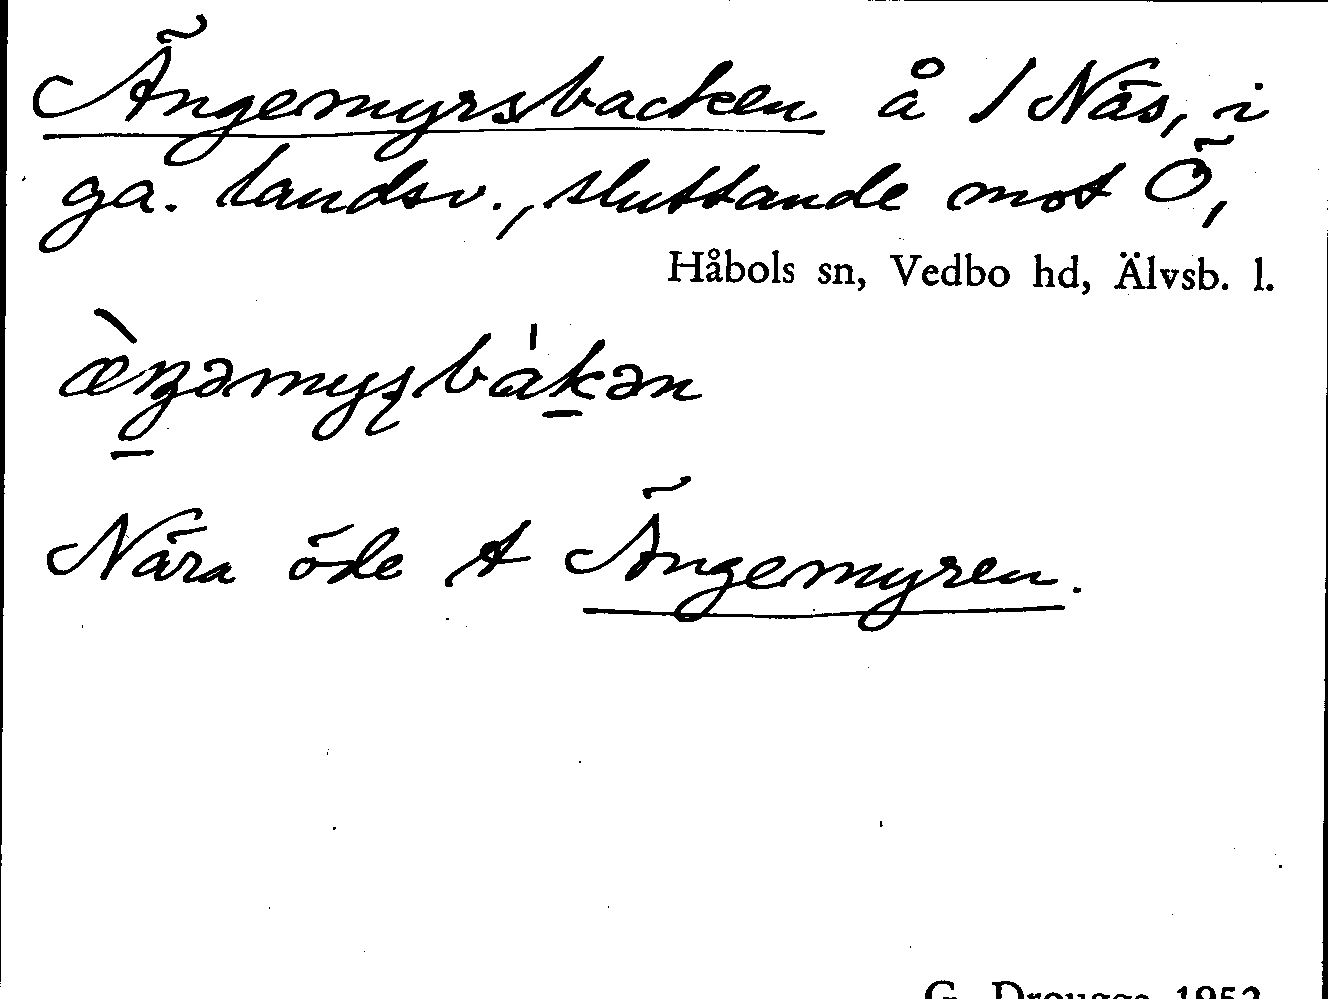 Ängemyrsbacken å 1 Näs, i
ga. landsv., sluttande mot Ö,
Håbols sn, Vedbo hd, Älvsb. l.
æ̀ŋəmyʂbàkən
Nära öde t Ängemyren.
G. Drougge 1952